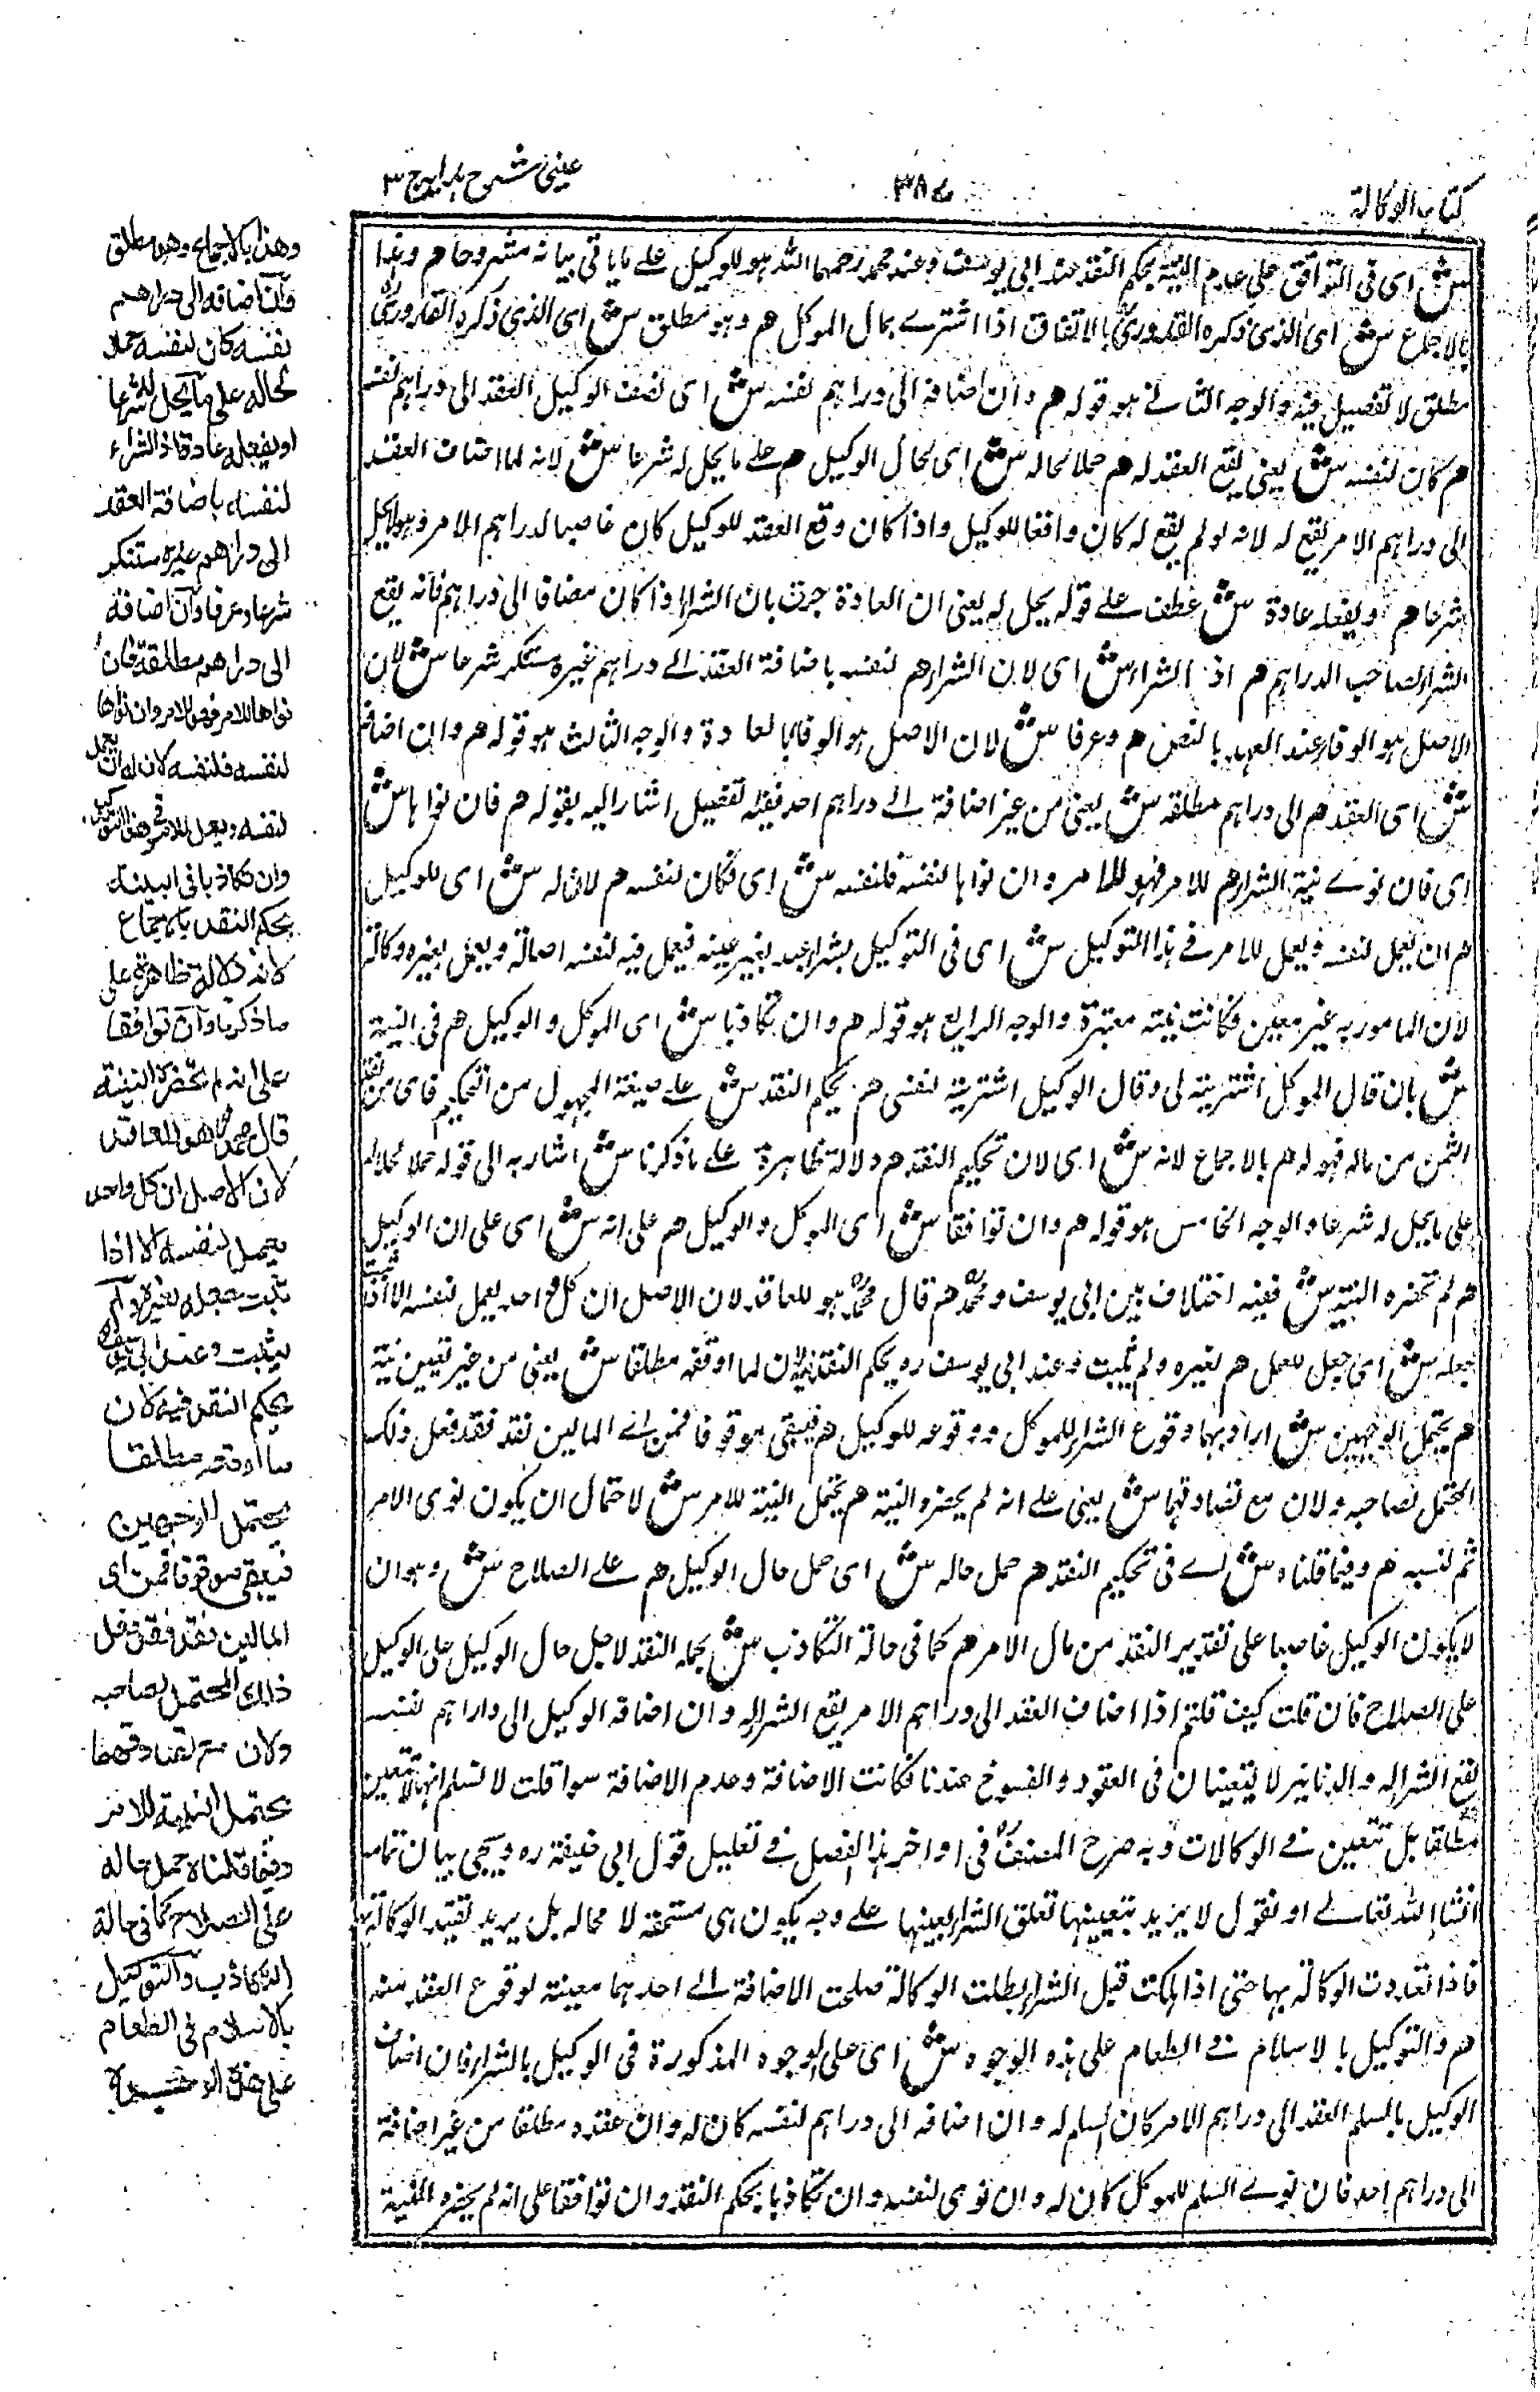 كتاب الوكالة
٣٨٤
عينى شرح هدايه ج ٣
ش اى فى التوافق على عدم النية بحكم النقد عند ابى يوسف وعند محمد رحمهما الله هو للوكيل على ما ياتى بيانه مشروحا هم وهذا
بالاجماع ش اى الذى ذكره القدورى بالاتفاق اذا اشترى بمال الموكل هم وهو مطلق ش اى الذى ذكره القدورى
مطلق لا تفصيل فيه والوجه الثانى هو قوله هم وان اضافه الى دراهم نفسه ش اى اضاف الوكيل العقد الى دراهم نفسه
هم كان لنفسه ش يعنى يقع العقد له هم حملا لحاله ش اى لحال الوكيل هم على ما يحل له شرعا ش لانه لما اضاف العقد
الى دراهم الامر يقع له لانه لو لم يقع له كان واقعا للوكيل واذا كان وقع العقد للوكيل كان غاصبا لدراهم الامر وهو لا يحل
شرعا هم او يفعله عادة ش عطف على قوله يحل له يعنى ان العادة جرت بان الشراء اذا كان مضافا الى دراهم فانه يقع
الشراء لصاحب الدراهم هم اذ الشراء ش اى لان الشراء هم لنفسه باضافة العقد الى دراهم غيره مستنكر شرعا ش لان
الاصل هو الوفاء عند العهد بالنص هم وعرفا ش لان الاصل هو الوفا بالعادة والوجه الثالث هو قوله هم وان اضافه
ش اى العقد هم الى دراهم مطلقه ش يعنى من غير اضافة الى دراهم احد ففيه تفصيل اشار اليه بقوله هم فان نواها ش
اى فان نوى نية الشراء هم للامر فهو للامر وان نواها لنفسه فلنفسه ش اى فكان لنفسه هم لان له ش اى للوكيل
هم ان يعمل لنفسه ويعمل للامر فى هذا التوكيل ش اى فى التوكيل بشراء عبد بغير عينه فيعمل فيه لنفسه اصالة ويعمل بغيره وكالة
لان المامور به غير معين فكانت نيته معتبرة والوجه الرابع هو قوله هم وان تكاذبا ش اى الموكل والوكيل هم فى النية
ش بان قال الموكل اشتريته لى وقال الوكيل اشتريته لنفسى هم يحكم النقد ش على صيغة المجهول من التحكيم فاى من نقد
الثمن من ماله فهو له هم بالاجماع لانه ش اى لان تحكيم النقد هم دلالة ظاهرة على ما ذكرنا ش اشار به الى قوله حملا لحاله
على ما يحل له شرعا والوجه الخامس هو قوله هم وان توافقا ش اى الموكل والوكيل هم على انه ش اى على ان الوكيل
هم لم تحضره النية ش ففيه اختلاف بين ابى يوسف ومحمد هم قال محمد هو للعاقد لان الاصل ان كل واحد يعمل لنفسه الا اذا ثبت
جعله ش اى جعل العمل هم لغيره ولم يثبت وعند ابى يوسف ره يحكم النقد فيه لان ما اوقعه مطلقا ش يعنى من غير تعيين نية
هم يحتمل الوجهين ش اراد بهما وقوع الشراء للموكل ووقوعه للوكيل هم فيبقى موقوفا فمن اى المالين نقد فقد فعل ذلك
المحتمل لصاحبه ولان مع تصادقهما ش يعنى على انه لم يحضره النية هم يحتمل النية للامر ش لاحتمال ان يكون نوى الامر
ثم نسيه هم وفيما قلناه ش اى فى تحكيم النقد هم حمل حاله ش اى حمل حال الوكيل هم على الصلاح ش وهو ان
لا يكون الوكيل غاصبا على تقدير النقد من مال الامر هم كما فى حالة التكاذب ش يحكم النقد لاجل حال الوكيل على الوكيل
على الصلاح فان قلت كيف قلتم اذا اضاف العقد الى دراهم الامر يقع الشراء له وان اضافه الوكيل الى دراهم نفسه
يقع الشراء له والدنانير لا يتعينان فى العقود والفسوخ عندنا فكانت الاضافة وعدم الاضافة سواء قلت لا نسلم انها لا تتعين
مطلقا بل تتعين فى الوكالات وبه صرح المصنف فى اواخر هذا الفصل فى تعليل قول ابى حنيفة ره ويجئ بيان تمامه
انشاء الله تعالى او نقول لا يريد بتعيينها تعلق الشراء بعينها على وجه يكون هى مستحقة لا محاله بل يريد تقييد الوكالة بها
فاذا تقيدت الوكالة بها حتى اذا هلكت قبل الشراء بطلت الوكالة صلحت الاضافة الى احدهما معينة لوقوع العقد منه
هم والتوكيل بالاسلام فى الطعام على هذه الوجوه ش اى على الوجوه المذكورة فى الوكيل بالشراء فان اضاف
الوكيل بالسلم العقد الى دراهم الامر كان السلم له وان اضافه الى دراهم لنفسه كان له وان عقده مطلقا من غير اضافة
الى دراهم احد فان نوى السلم للموكل كان له وان نوى لنفسه وان تكاذبا يحكم النقد وان توافقا على انه لم يحضره النية
وهذا بالاجماع وهو مطلق
وان اضافه الى دراهم
نفسه كان لنفسه حملا
لحاله على ما يحل له شرعا
او يفعله عادة اذ الشراء
لنفسه باضافة العقد
الى دراهم غيره مستنكر
شرعا وعرفا وان اضافه
الى دراهم مطلقة فان
نواها للامر فهو للامر وان نواها
لنفسه فلنفسه لان له ان يعمل
لنفسه ويعمل للامر فى هذا التوكيل
وان تكاذبا فى النية
يحكم النقد بالاجماع
لانه دلالة ظاهرة على
ما ذكرنا وان توافقا
على انه لم تحضره النية
قال محمد هو للعاقد
لان الاصل ان كل واحد
يعمل لنفسه الا اذا
ثبت جعله لغيره ولم
يثبت وعند ابى يوسف
يحكم النقد فيه لان
ما اوقعه مطلقا
يحتمل الوجهين
فيبقى موقوفا فمن اى
المالين نقد فقد فعل
ذلك المحتمل لصاحبه
ولان مع تصادقهما
يحتمل النية للامر
وفيما قلناه حمل حاله
على الصلاح كما فى حالة
التكاذب والتوكيل
بالاسلام فى الطعام
على هذه الوجوه